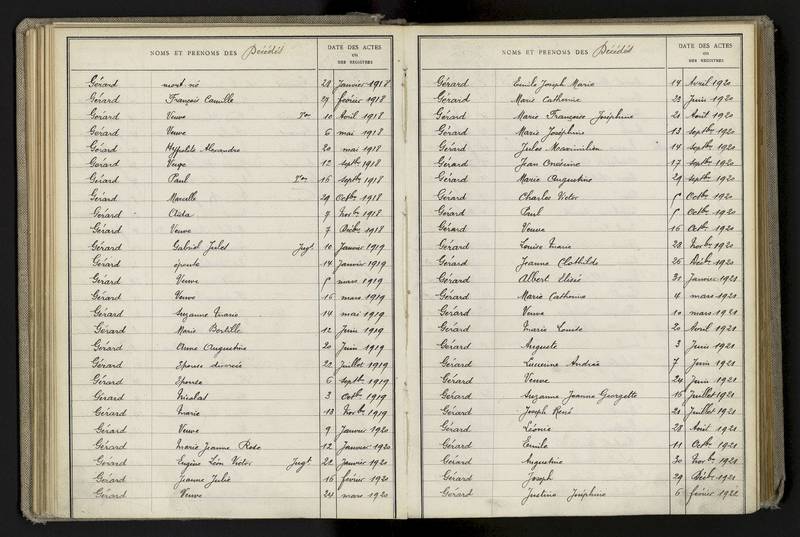 NOMS ET PRENOMS DES Décédés
DATE DES ACTES
OU
DES REGISTRES
Gérard mort né 28 Janvier 1918
Gérard François Camille 27 février 1918
Gérard Veuve Ton 10 Avril 1918
Gérard Veuve 6 mai 1918
Gérard Hyppolite Alexandre 20 mai 1918
Gérard Veuve 12 septbre 1918
Gérard Paul Ton 16 septbre 1918
Gérard Marcelle 29 Octbre 1918
Gérard Aïda 7 Novbre 1918
Gérard Veuve 7 Décbre 1918
Gérard Gabriel Jules Jugt 10 Janvier 1919
Gérard épouse 14 Janvier 1919
Gérard Veuve 5 mars 1919
Gérard Veuve 16 mars 1919
Gérard Suzanne Marie 14 mai 1919
Gérard Marie Bertille 12 Juin 1919
Gérard Anne Augustine 20 Juin 1919
Gérard Epouse divorcée 22 Juillet 1919
Gérard Epouse 6 septbre 1919
Gérard Nicolas 3 Octbre 1919
Gérard Marie 13 Novbre 1919
Gérard Veuve 9 Janvier 1920
Gérard Marie Jeanne Rose 12 Janvier 1920
Gérard Eugène Léon Victor Jugt 22 Janvier 1920
Gérard Jeanne Julie 16 février 1920
Gérard Veuve 24 mars 1920
NOMS ET PRENOMS DES Décédés
DATE DES ACTES
OU
DES REGISTRES
Gérard Emile Joseph Marie 14 Avril 1920
Gérard Marie Catherine 23 Juin 1920
Gérard Marie Françoise Joséphine 21 Août 1920
Gérard Marie Joséphine 13 septbre 1920
Gérard Jules Maximilien 14 septbre 1920
Gérard Jean Onésime 17 septbre 1920
Gérard Marie Augustine 29 septbre 1920
Gérard Charles Victor 5 Octbre 1920
Gérard Paul 5 Octbre 1920
Gérard Veuve 16 Octbre 1920
Gérard Louise Marie 28 Novbre 1920
Gérard Jeanne Clothilde 26 Décbre 1920
Gérard Albert Elisée 31 Janvier 1921
Gérard Marie Catherine 4 mars 1921
Gérard Veuve 10 mars 1921
Gérard Marie 20 Avril 1921
Gérard Auguste 3 Juin 1921
Gérard Lucienne Andrée 7 Juin 1921
Gérard Veuve 24 Juin 1921
Gérard Suzanne Jeanne Georgette 16 Juillet 1921
Gérard Joseph René 21 Juillet 1921
Gérard Léonie 28 Août 1921
Gérard Emile 11 Octbre 1921
Gérard Augustine 30 Novbre 1921
Gérard Joseph 29 Décbre 1921
Gérard Justine Joséphine 6 février 1922